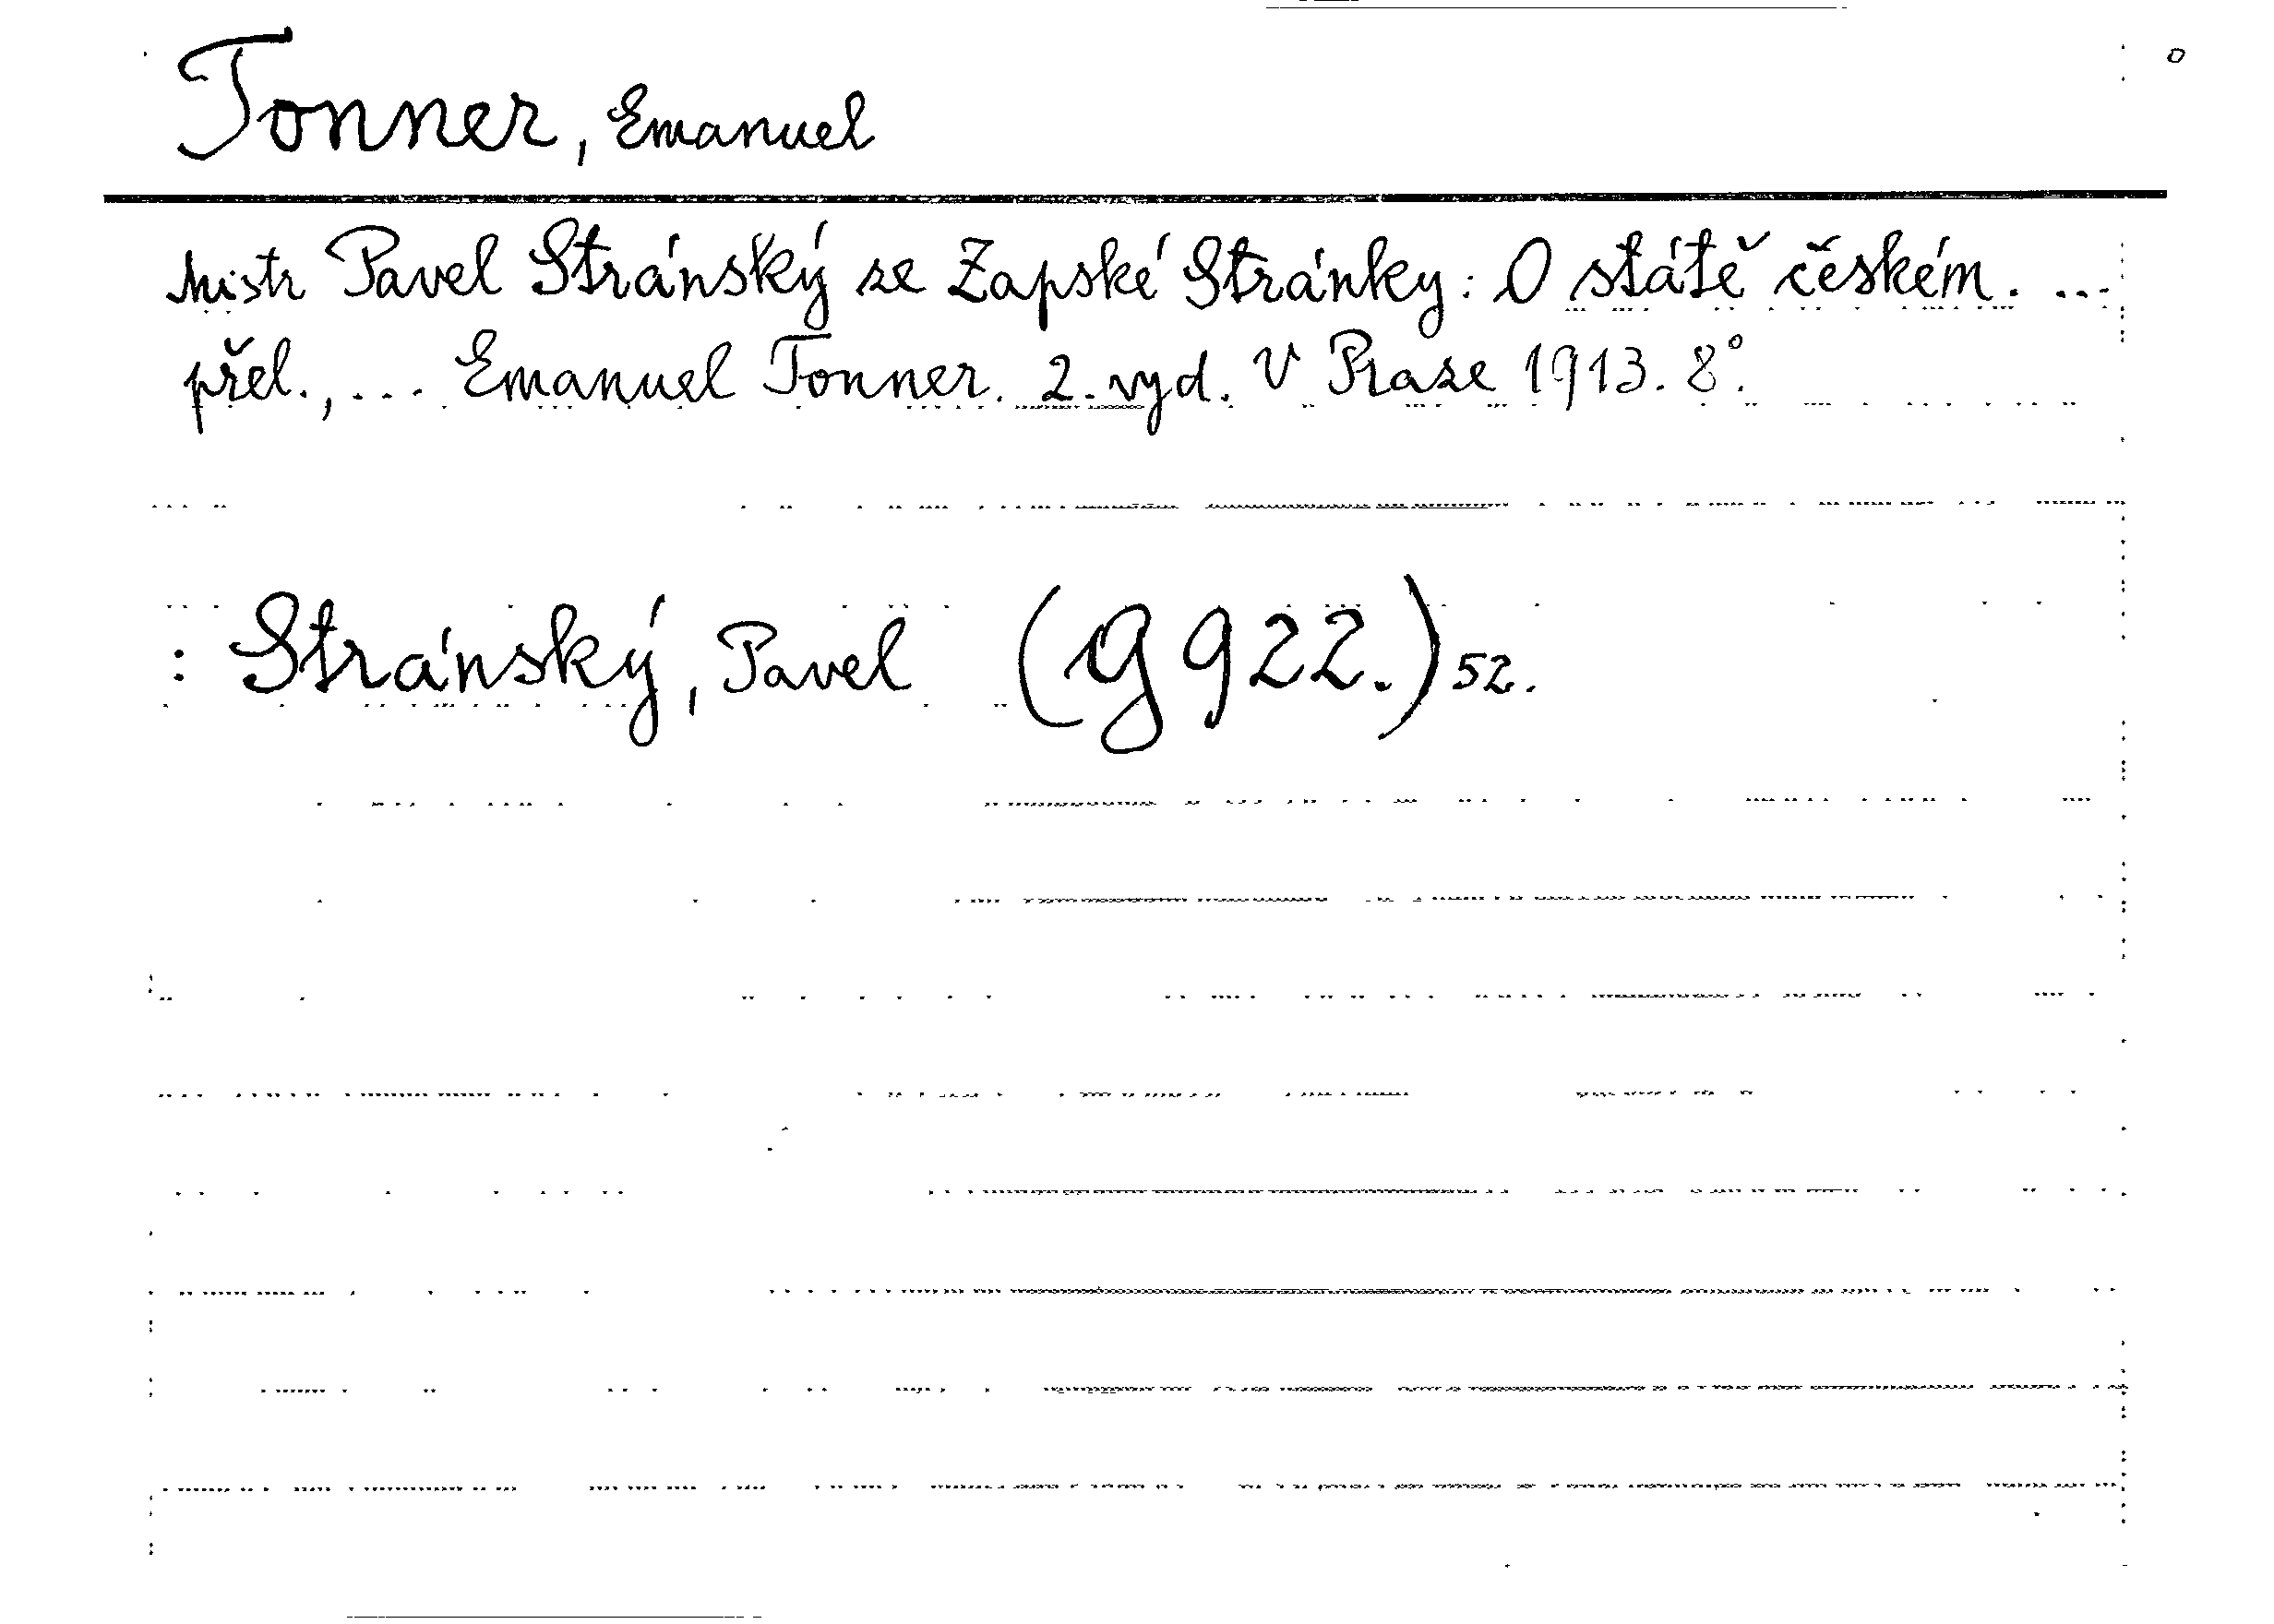 Tonner, Emanuel
Mistr Pavel Stránský ze Zapské Stránky: O státě českém. ...
přel., ... Emanuel Tonner. 2. vyd. V Praze 1913. 8°.
: Stránský, Pavel (g 922.) 52.